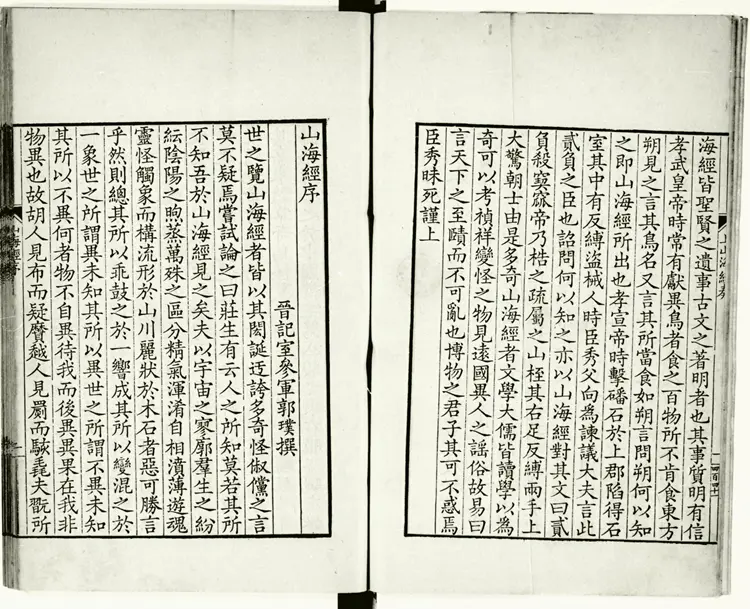 上山海經表
海經皆聖賢之遺事古文之著明者也其事質明有信
孝武皇帝時嘗有獻異鳥者食之百物所不肯食東方
朔見之言其鳥名又言其所當食如朔言問朔何以知
之即山海經所出也孝宣帝時擊磻石於上郡陷得石
室其中有反縛盜械人時臣秀父向為諫議大夫言此
貳負之臣也詔問何以知之亦以山海經對其文曰貳
負殺窫窳帝乃梏之疏屬之山桎其右足反縛兩手上
大驚朝士由是多奇山海經者文學大儒皆讀學以為
奇可以考禎祥變怪之物見遠國異人之謠俗故易曰
言天下之至賾而不可亂也博物之君子其可不惑焉
臣秀昧死謹上
山海經序
晉記室參軍郭璞撰
世之覽山海經者皆以其閎誕迂誇多奇怪俶儻之言
莫不疑焉嘗試論之曰莊生有云人之所知莫若其所
不知吾於山海經見之矣夫以宇宙之寥廓羣生之紛
紜陰陽之煦蒸萬殊之區分精氣渾淆自相濆薄遊魂
靈怪觸象而構流形於山川麗狀於木石者惡可勝言
乎然則總其所以乖鼓之於一響成其所以變混之於
一象世之所謂異未知其所以異世之所謂不異未知
其所以不異何者物不自異待我而後異異果在我非
物異也故胡人見布而疑黂越人見罽而駭毳夫翫所
山海經序